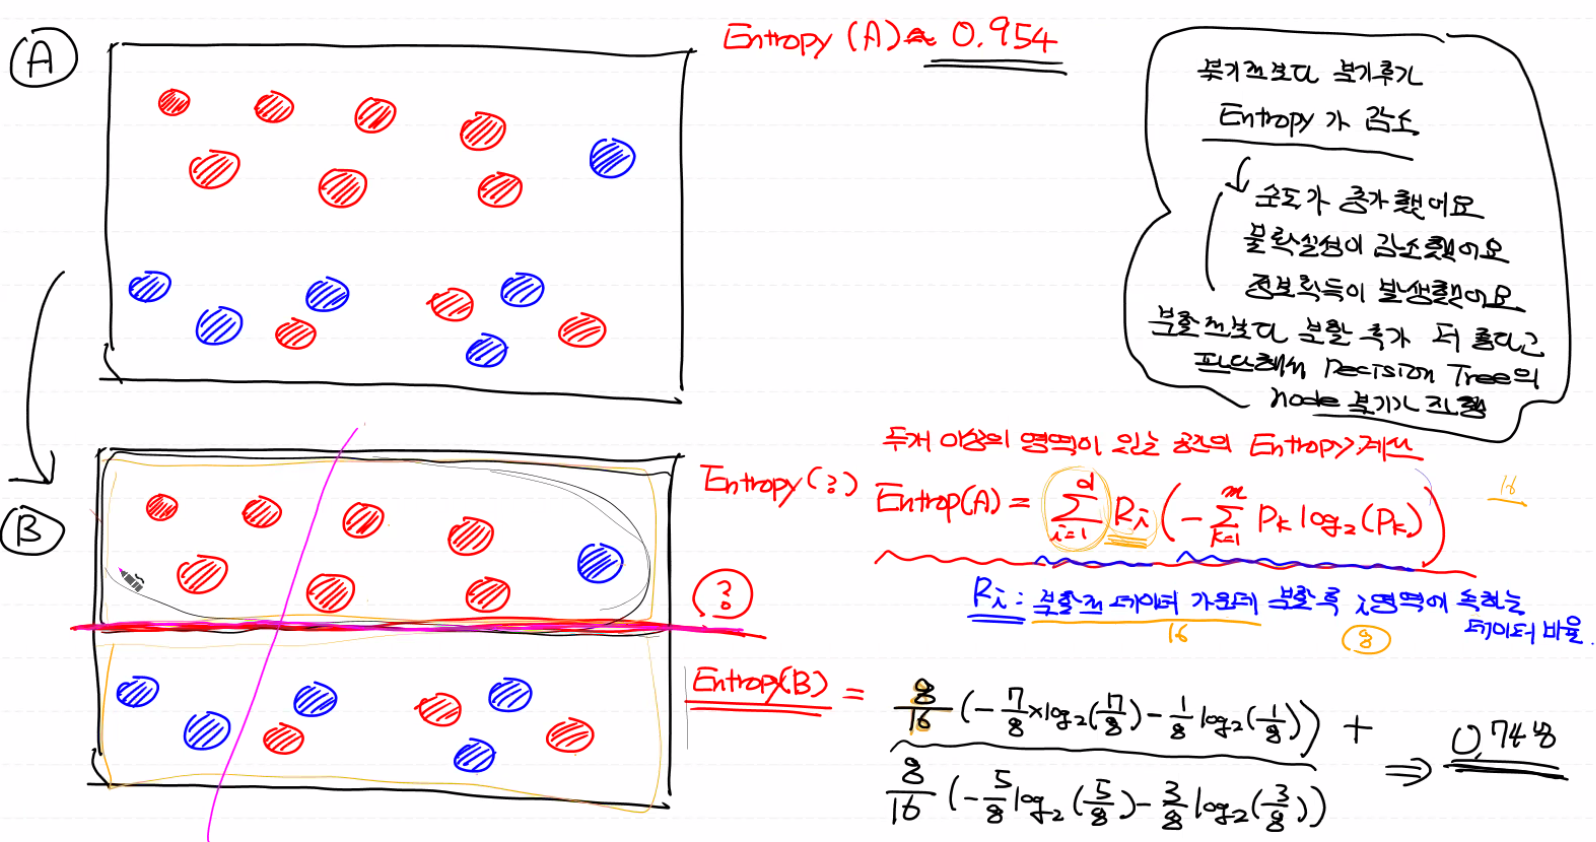 A
Entropy (A) ≈ 0.954
분기전보다 분기후가
Entropy 가 감소
순도가 증가했어요
불확실성이 감소했어요
정보획득이 발생했어요
분할전보다 분할 후가 더 좋다고
판단해서 Decision Tree의
node 분기가 진행
두개 이상의 영역이 있는 공간의 Entropy 계산
B
Entropy(?) Entrop(A) = \sum_{i=1}^{d} R_i ( - \sum_{k=1}^{m} P_k log_2 (P_k) )
16
?
R_i : 분할전 데이터 가운데 분할 후 i영역에 속하는
데이터 비율.
16 8
Entropy(B) = 8/16 ( - 7/8 × log_2(7/8) - 1/8 log_2(1/8) ) +
8/16 ( - 5/8 log_2(5/8) - 3/8 log_2(3/8) )
⇒ 0.748